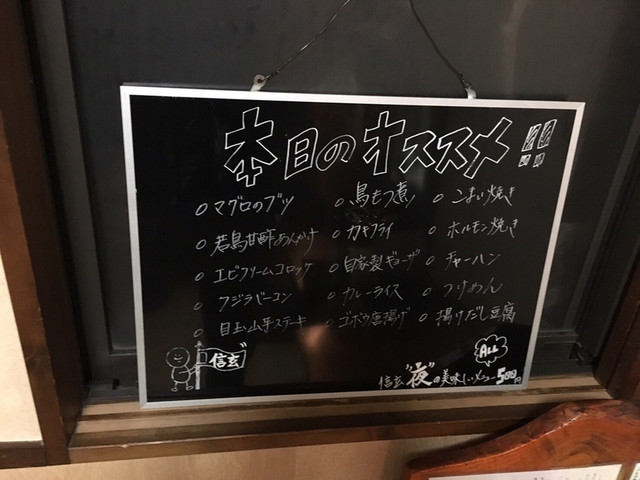 本日のオススメ!!
○マグロのブツ
○若鳥甘酢あんかけ
○エビクリームコロッケ
○クジラベーコン
○目玉山芋ステーキ
○鳥もつ煮
○カキフライ
○自家製ギョーザ
○カレーライス
○ゴボウ唐揚げ
○こまい焼き
○ホルモン焼き
○チャーハン
○つけめん
○揚げだし豆腐
信玄
ALL
信玄"夜"の美味しいメニュー500円